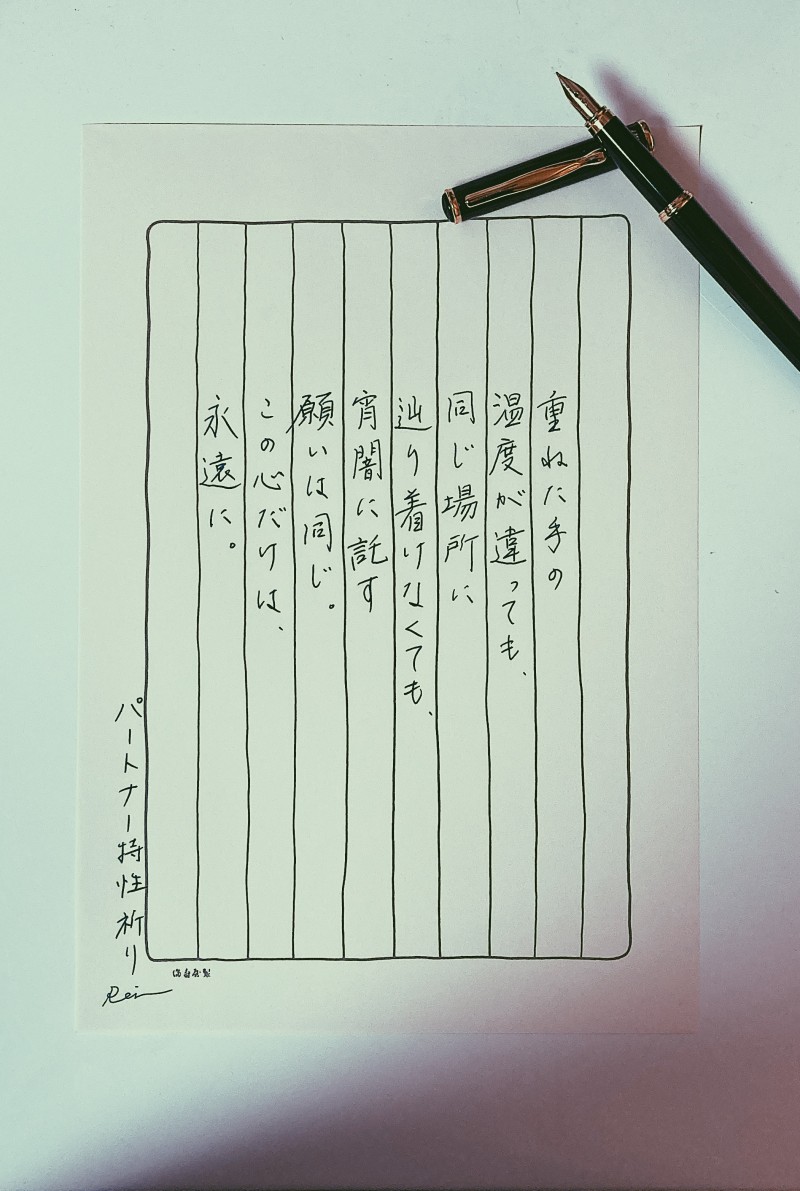 重ねた手の
温度が違っても、
同じ場所に
辿り着けなくても、
宵闇に託す
願いは同じ。
この心だけは、
永遠に。
パートナー特性祈り
Rein